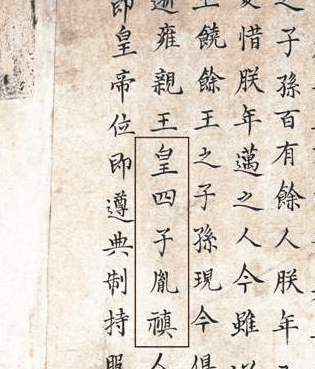 之子孫百有餘人朕年
惜朕年邁之人今雖
饒餘王之子孫現今俱
逝雍親王皇四子胤禛人
即皇帝位即遵典制持服